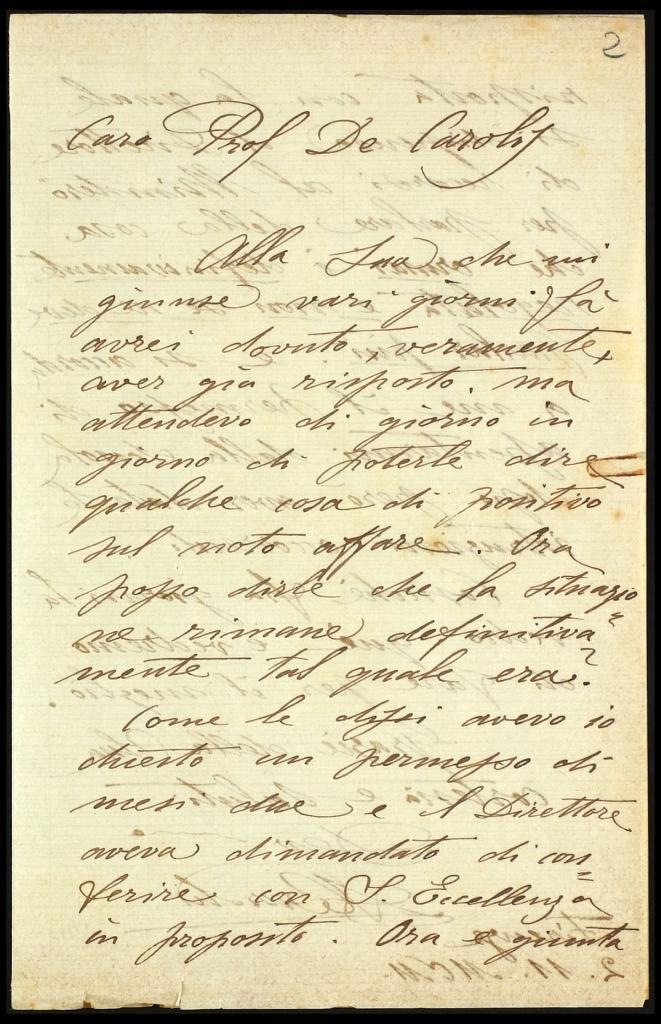 2
Caro Prof De Carolis
Alla Sua che mi
giunse vari giorni fà
avrei dovuto, veramente,
aver già risposto. ma
attendevo di giorno in
giorno di poterle dire
qualche cosa di positivo
sul noto affare. Ora
posso dirle che la situazio=
ne rimane definitiva=
mente tal quale era.
Come le dissi avevo io
chiesto un permesso di
mesi due e il Direttore
aveva dimandato di con=
ferire con S. Eccellenza
in proposito. Ora è giunta